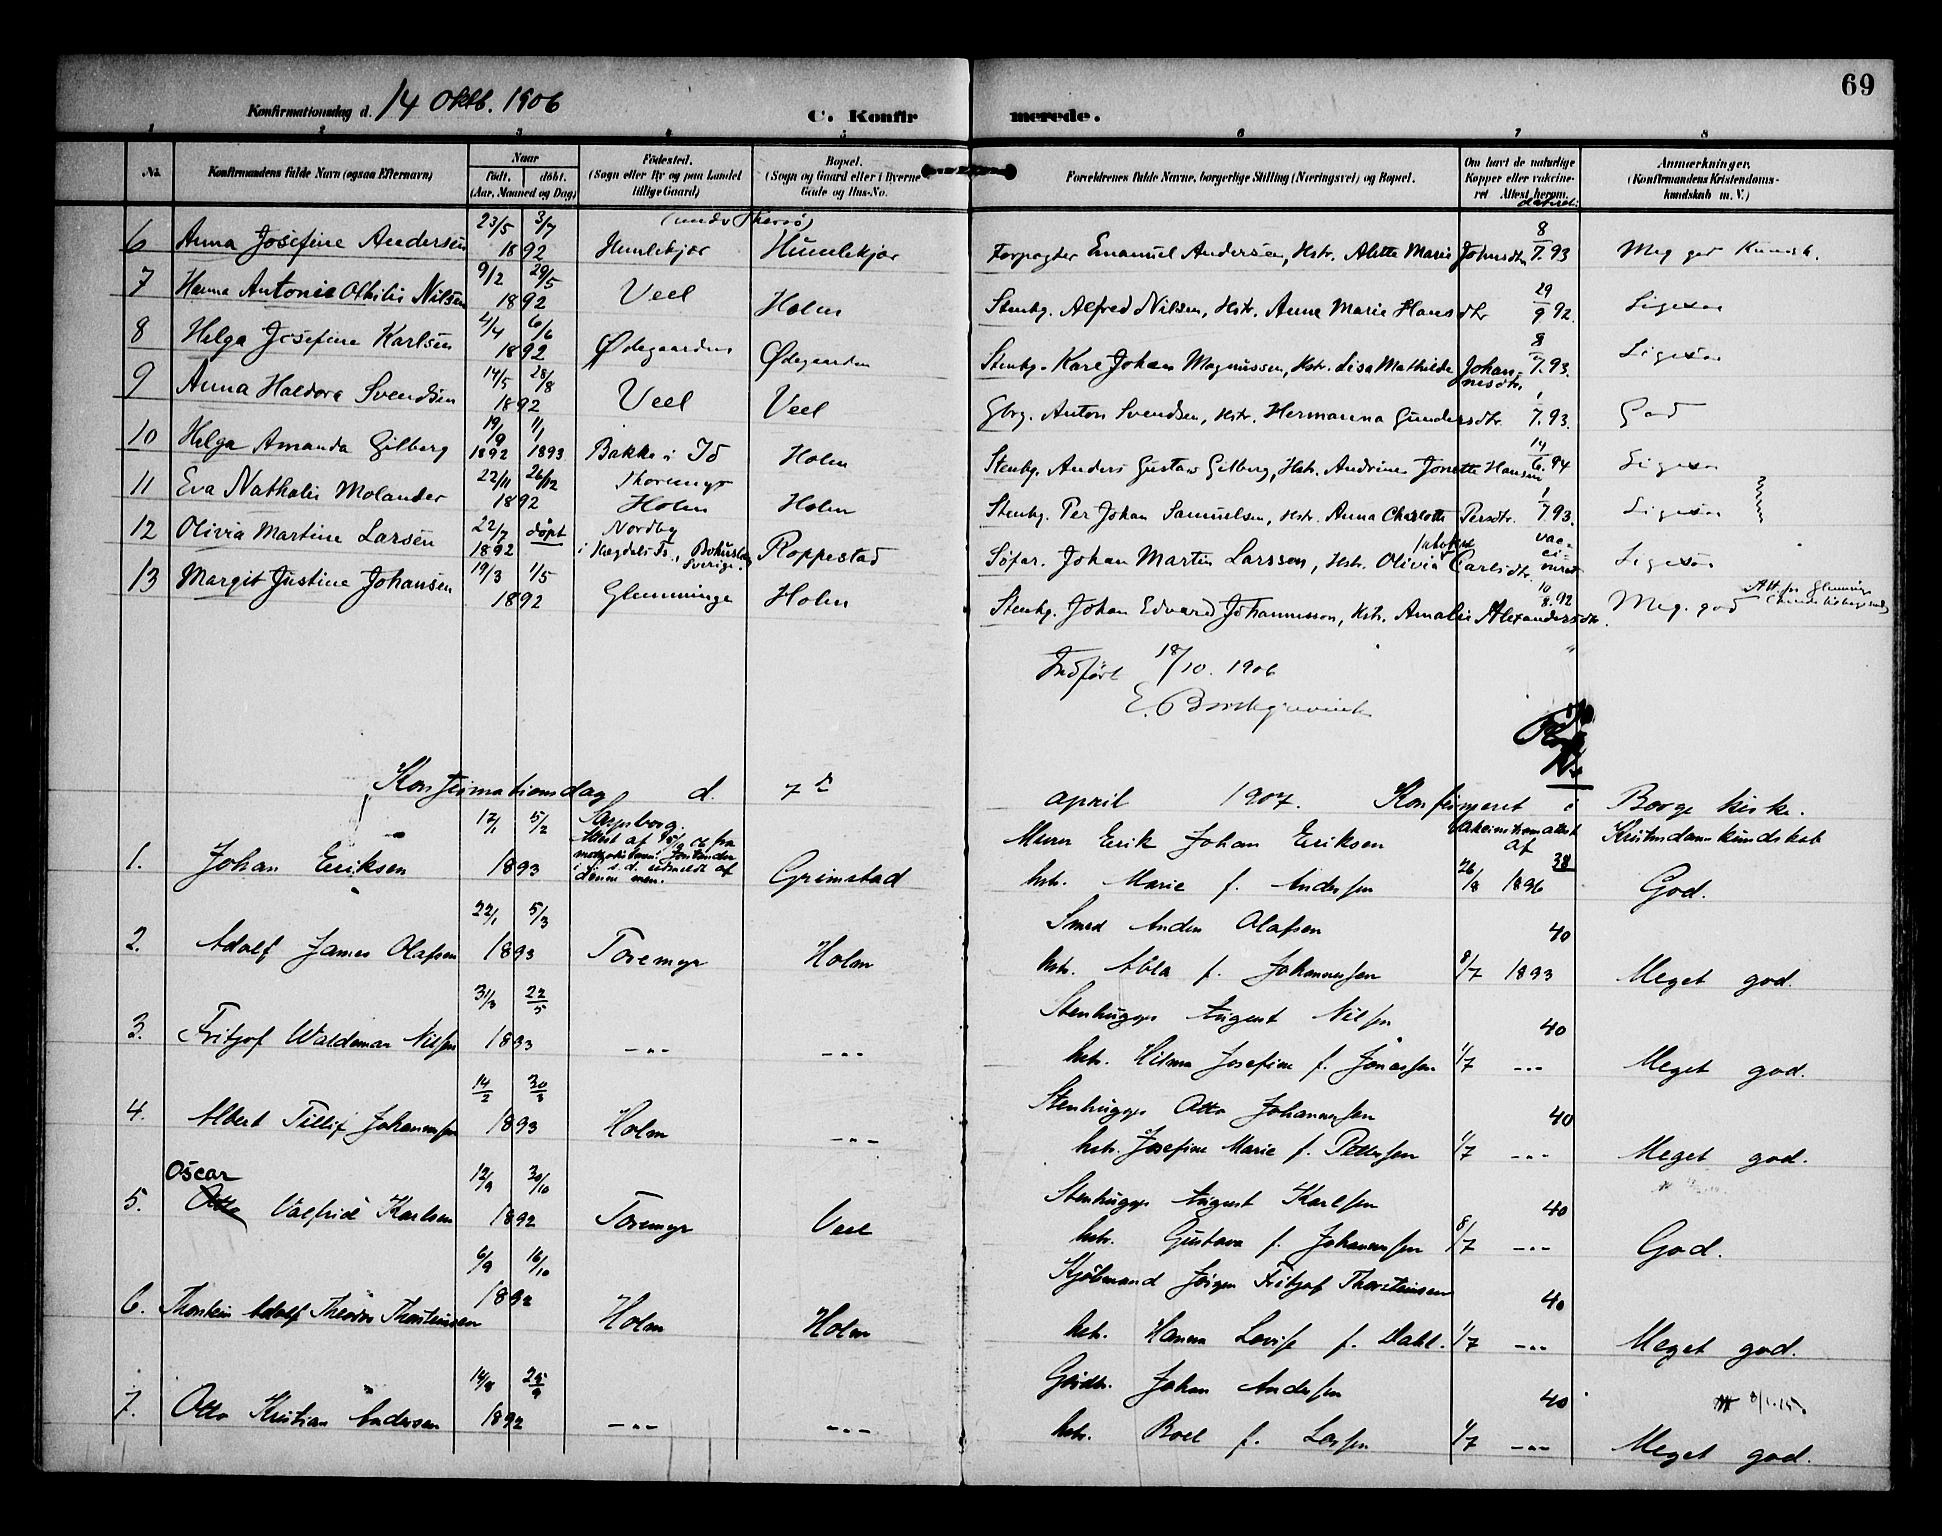 69
Konfirmationsdag d. 14 Oktb. 1906
C. Konfirmerede.
1 2 3 4 5 6 7 8
No. Konfirmandens fulde Navn (ogsaa Efternavn) Naar födt. döbt. (Aar, Maaned og Dag) Födested. (Sogn eller By og paa Landet tillige Gaard) Bopæl. (Sogn og Gaard eller i Byerne Gade og Hus-No. Forældrenes fulde Navne, borgerlige Stilling (Næringsvei) og Bopæl. Om havt de naturlige Kopper eller vakcineret Attest herom, Anmærkninger. (Konfirmandens Kristendomskundskab m. V.)
6 Anna Josefine Andersen 23/5 3/7 1892 Humlekjær Humlekjær Forpagter Emanuel Andersen, Hstr. Alette Marie Johnsdtr 8/7. 93 Meg god Kundsk.
7 Hanna Antonie Othilie Nilsen 9/2 29/5 1892 Veel Holm Stenhg. Alfred Nilsen, Hstr. Anna Marie Hansdtr 29/9 92. Ligesaa
8 Helga Josefine Karlsen 4/4 6/6 1892 Ødegaarden Ødegaarden Stenhg. Karl Johan Magnussen, Hstr. Lisa Mathilde Johannesdtr. 8/7. 93. Ligesaa
9 Anna Haldora Svendsen 14/5 28/8 1892 Veel Veel Gbrg. Anton Svendsen, Hstr. Hermanna Gundersdtr. 1/7. 93. God
10 Helga Amanda Gilberg 19/9 1892 1/1 1893 Bakke i Id Holm Stenhg. Anders Gustav Gilberg, Hstr. Andrine Jonette Hansen 14/6. 94 Ligesaa
11 Eva Nathalie Molander 22/11 26/12 1892 Thoremyr Holm Holm Stenhg. Per Johan Samuelsen, Hstr. Anna Charlotte Persdtr. 1/7 93. Ligesaa
12 Olivia Martine Larsen 22/7 1892 döpt Nordby i Bohuslen, Sverige. Roppestad Söfar. Johan Martin Larsson, Hstr. Olivia Carlsdtr. vaccineret Ligesaa
13 Margit Justine Johansen 19/3 1/5 1892 Glemminge Holm Stenhg. Johan Edvard Johannesson, Hstr. Amalie Alexandersdtr. 10/8. 92 Meg. god Att. fra Glemminge
Indført 18/10. 1906
E. Borchgrevink
Konfirmationsdag d. 7de april 1907. Konfirmeret i Borge kirke.
Vakcinationsattest af Kristendomskundskab
1. Johan Eriksen 12/1 5/2 1893 Sarpsborg Grimstad Murer Erik Johan Eriksen hstr. Marie f. Andersen 26/8 1896 38 God.
2. Adolf James Olafsen 22/1 5/3 1893 Toremyr Holm Smed Anders Olafsen hstr. Abla f. Johannessen 8/7 1893 40 Meget god.
3. Fritjof Waldemar Nilsen 31/3 22/5 1893 -"- -"- Stenhugger August Nilsen hstr. Hilma Josefine f. Jonassen 1/7 -"- 40 Meget god.
4. Albert Tillif Johannessen 14/2 30/3 1893 Holm -"- Stenhugger Otto Johannessen hstr. Josefine Marie f. Pettersen 1/7 -"- 40 Meget god.
5. Oscar Otto Valfrid Karlsen 12/9 30/10 1892 Toremyr Veel Stenhugger August Karlsen hstr. Gustava f. Johannessen 8/7 -"- 40 God.
6. Thorstein Adolf Theodor Thorsteinsen 6/9 16/10 1892 Holm Holm Kjøbmand Jörgen Fritjof Thorsteinsen hstr. Hanna Lovise f. Dahl. 1/7 -"- 40 Meget god.
7. Otto Kristian Andersen 14/8 25/9 1892 -"- -"- Gaardbr. Johan Andersen hstr. Boel f. Larsen 1/7 -"- 40 Meget god.